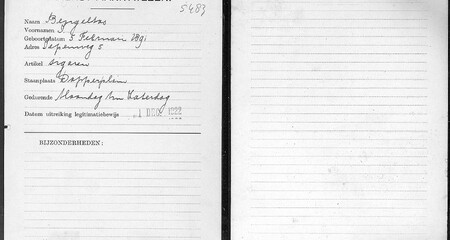 5483
Naam
Voornamen J.
Geboortedatum 5 Februari 1891
Adres Iepenweg 5
Artikel sigaren
Staanplaats Dapperplein
Gedurende Maandag t/m Zaterdag
Datum uitreiking legitimatiebewijs 1 DEC. 1922
BIJZONDERHEDEN: